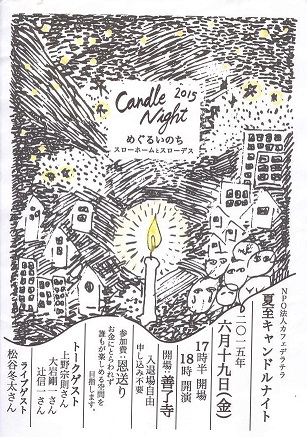 Candle 2015
Night
めぐるいのち
スローホームとスローデス
NPO法人カフェデラテラ
夏至キャンドルナイト
二〇一五年
六月十九日(金)
17時半 開場
18時 開演
開場:善了寺
入退場自由
申し込み不要
参加費:恩送り
お金にとらわれず
誰もが楽しめる空間を
目指します。
トークゲスト
上野宗則さん
大岩剛一さん
辻信一さん
ライブゲスト
松谷冬太さん